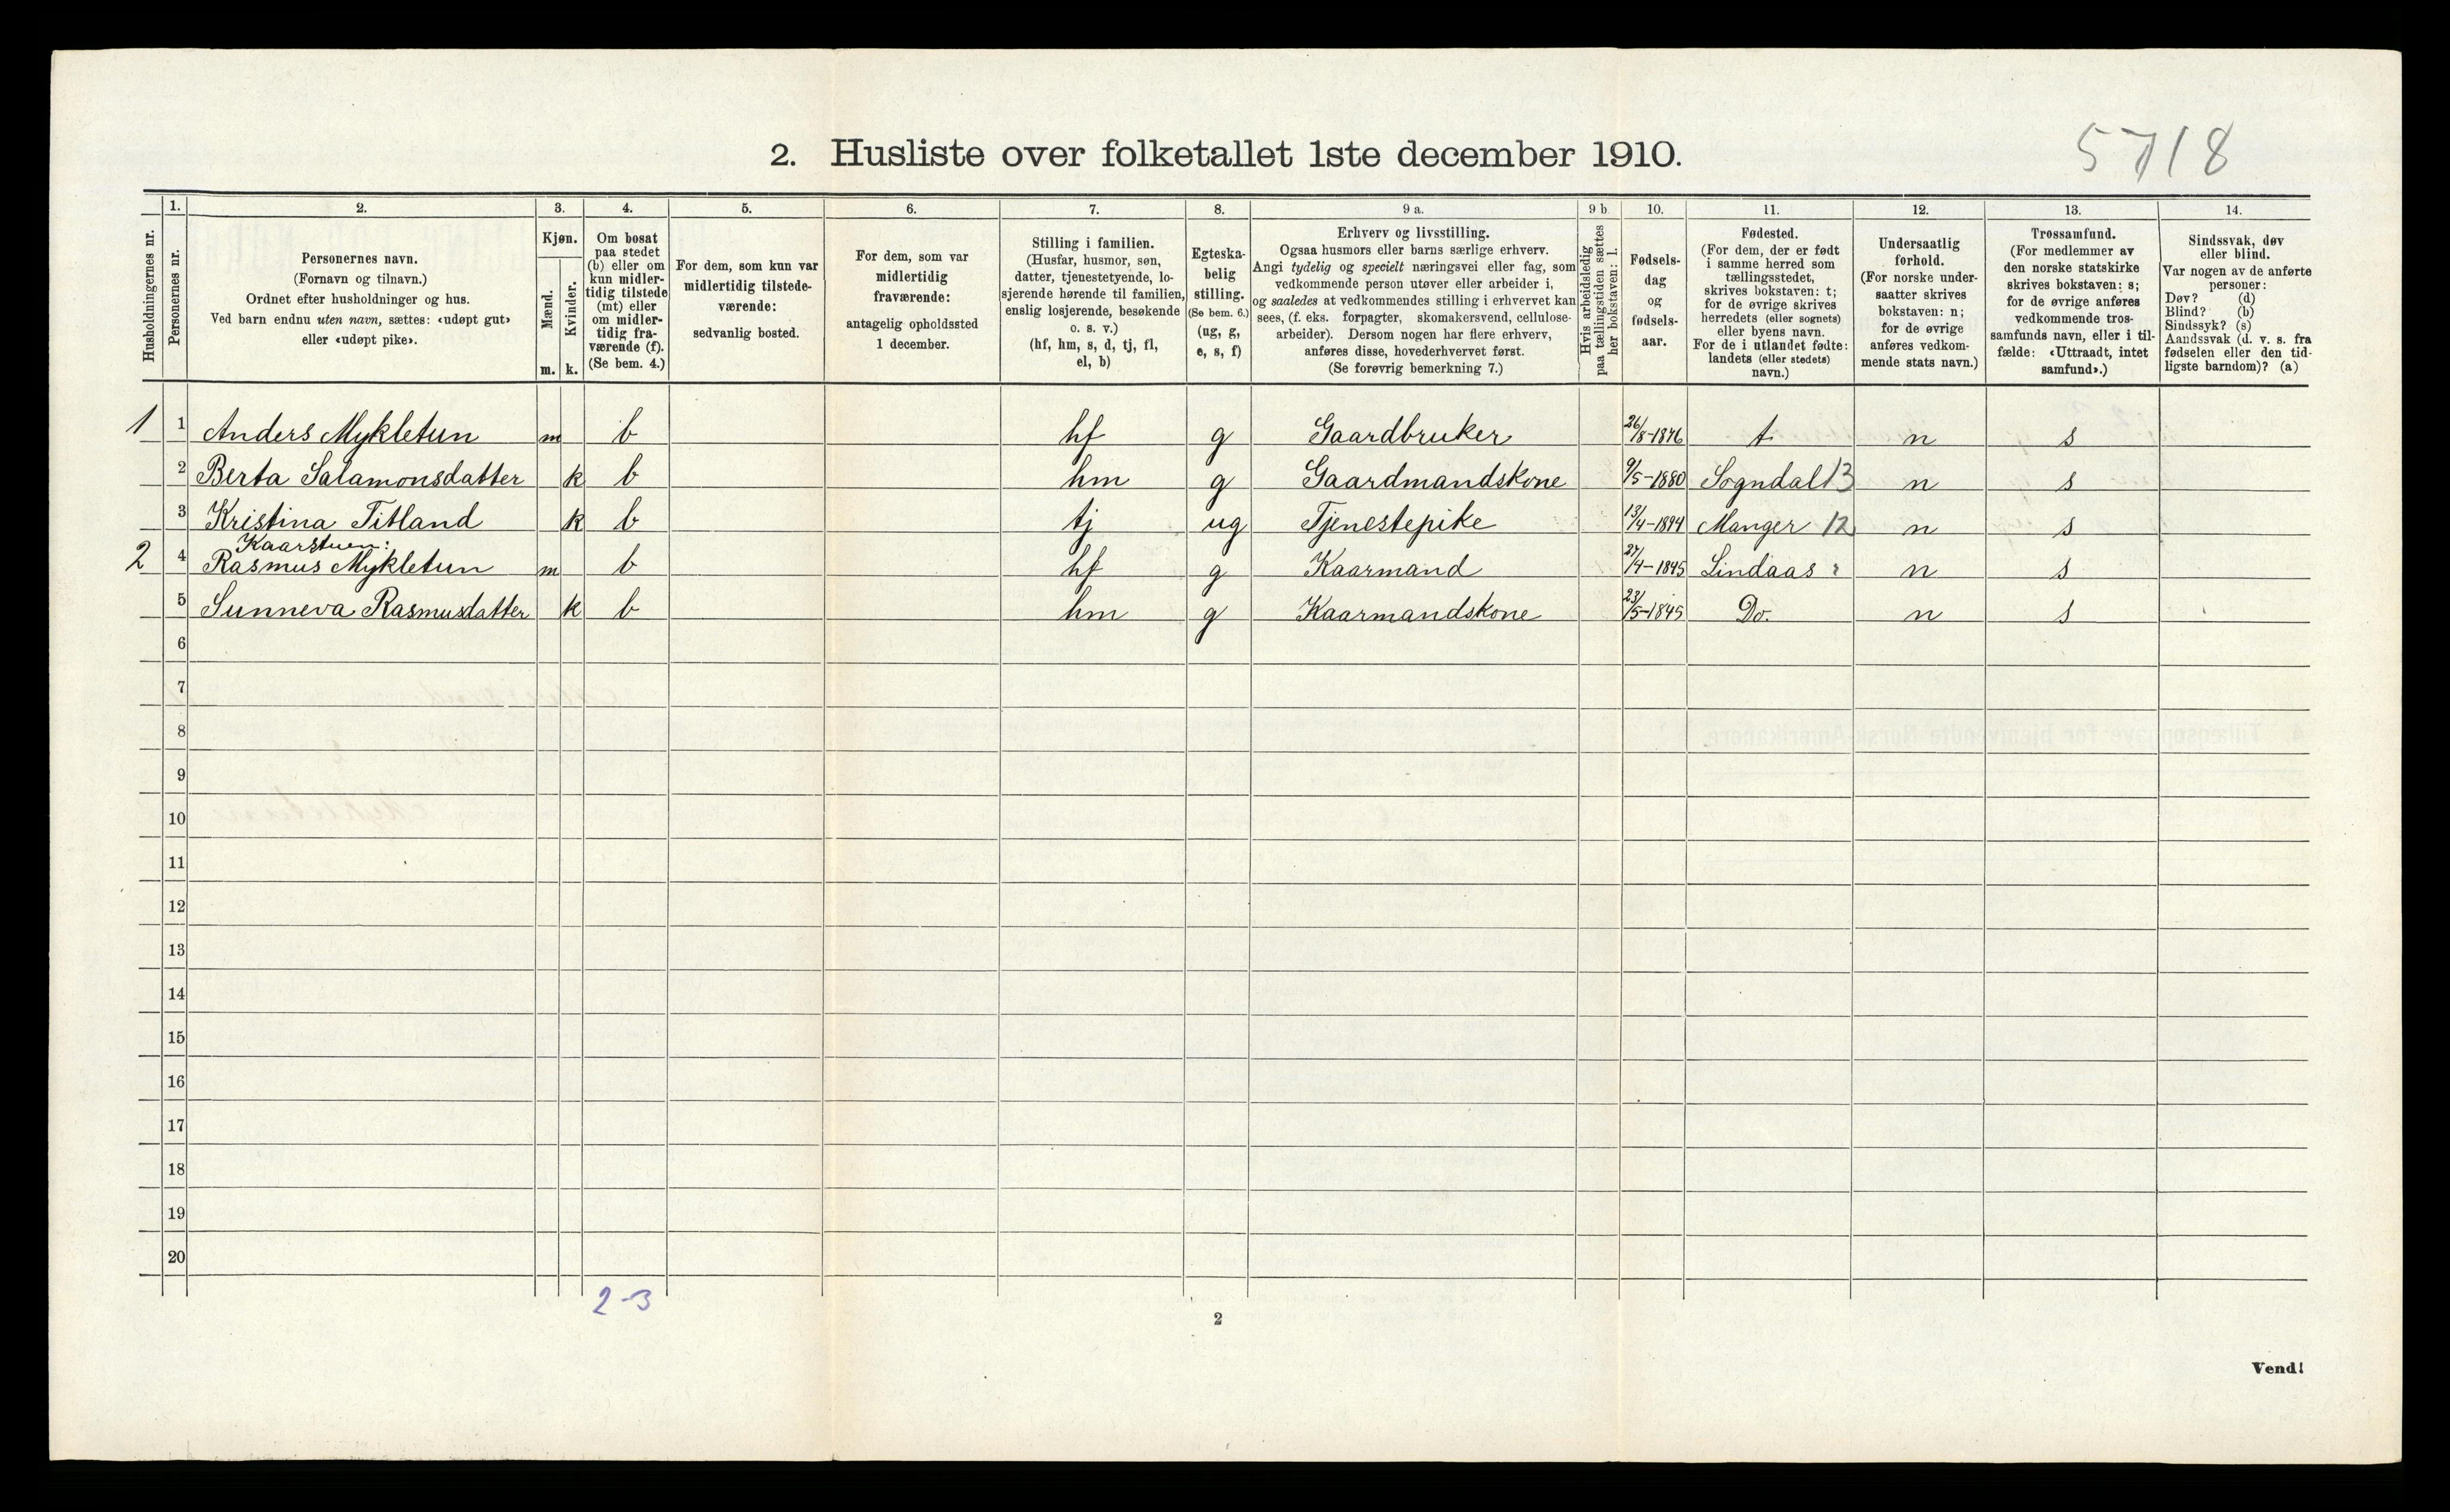 5718
2. Husliste over folketallet 1ste december 1910.
Husholdningernes nr.
1.
Personernes nr.
2.
Personernes navn.
(Fornavn og tilnavn.)
Ordnet efter husholdninger og hus.
Ved barn endnu uten navn, sættes: «udøpt gut»
eller «udøpt pike».
3.
Kjøn.
Mænd.
Kvinder.
m. k.
4.
Om bosat
paa stedet
(b) eller om
kun midler-
tidig tilstede
(mt) eller
om midler-
tidig fra-
værende (f).
(Se bem. 4.)
5.
For dem, som kun var
midlertidig tilstede-
værende:
sedvanlig bosted.
6.
For dem, som var
midlertidig
fraværende:
antagelig opholdssted
1 december.
7.
Stilling i familien.
(Husfar, husmor, søn,
datter, tjenestetyende, lo-
sjerende hørende til familien,
enslig losjerende, besøkende
o. s. v.)
(hf, hm, s, d, tj, fl,
el, b)
8.
Egteska-
belig
stilling.
(Se bem. 6.)
(ug, g,
e, s, f)
9 a.
Erhverv og livsstilling.
Ogsaa husmors eller barns særlige erhverv.
Angi tydelig og specielt næringsvei eller fag, som
vedkommende person utøver eller arbeider i,
og saaledes at vedkommendes stilling i erhvervet kan
sees, (f. eks. forpagter, skomakersvend, cellulose-
arbeider). Dersom nogen har flere erhverv,
anføres disse, hovederhvervet først.
(Se forøvrig bemerkning 7.)
9 b
Hvis arbeidsledig
paa tællingstiden sættes
her bokstaven: l.
10.
Fødsels-
dag
og
fødsels-
aar.
11.
Fødested.
(For dem, der er født
i samme herred som
tællingsstedet,
skrives bokstaven: t;
for de øvrige skrives
herredets (eller sognets)
eller byens navn.
For de i utlandet fødte:
landets (eller stedets)
navn.)
12.
Undersaatlig
forhold.
(For norske under-
saatter skrives
bokstaven: n;
for de øvrige
anføres vedkom-
mende stats navn.)
13.
Trossamfund.
(For medlemmer av
den norske statskirke
skrives bokstaven: s;
for de øvrige anføres
vedkommende tros-
samfunds navn, eller i til-
fælde: «Uttraadt, intet
samfund».)
14.
Sindssvak, døv
eller blind.
Var nogen av de anførte
personer:
Døv? (d)
Blind? (b)
Sindssyk? (s)
Aandssvak (d. v. s. fra
fødselen eller den tid-
ligste barndom)? (a)
1 1 Anders Mykletun m b hf g Gaardbruker 26/8-1876 t n s
2 Berta Salamonsdatter k b hm g Gaardmandskone 9/5-1880 Sogndal 13 n s
3 Kristina Titland k b tj ug Tjenestepike 13/4-1894 Manger 12 n s
Kaarstuen:
2 4 Rasmus Mykletun m b hf g Kaarmand 27/4-1845 Lindaas n s
5 Sunneva Rasmusdatter k b hm g Kaarmandskone 23/5-1845 Do. n s
6
7
8
9
10
11
12
13
14
15
16
17
18
19
20
2-3
2
Vend!